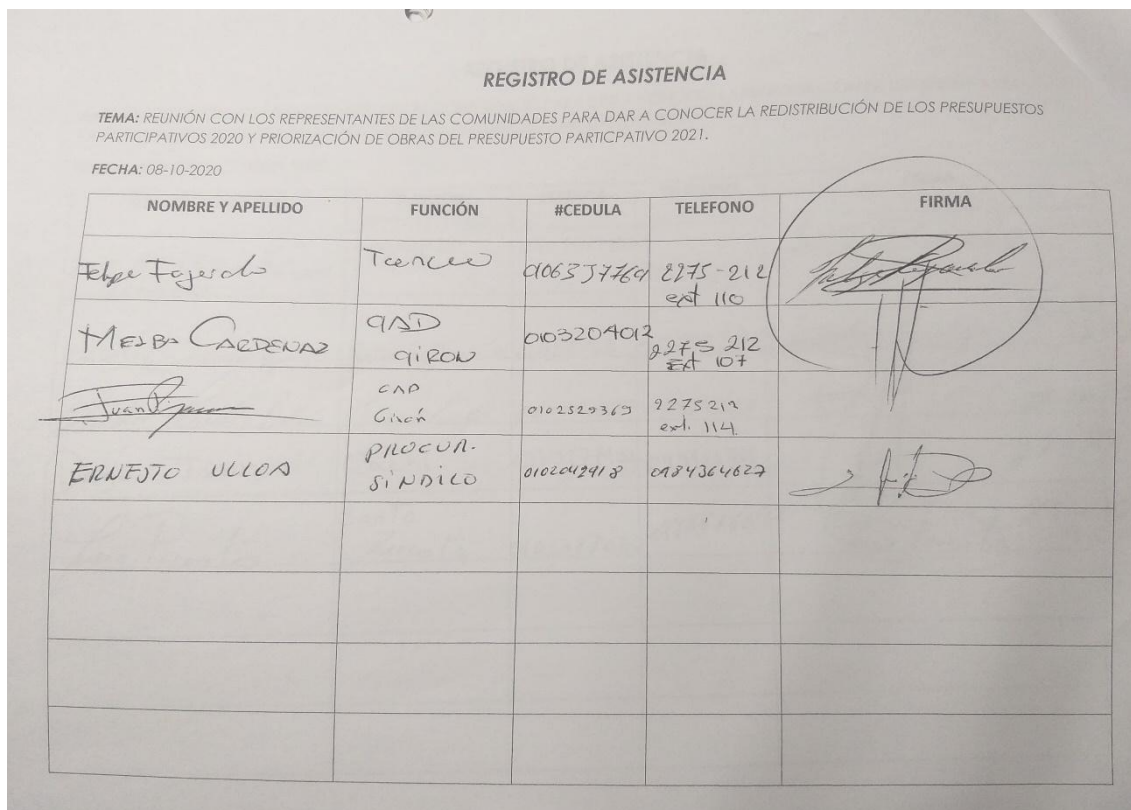 REGISTRO DE ASISTENCIA
TEMA: REUNIÓN CON LOS REPRESENTANTES DE LAS COMUNIDADES PARA DAR A CONOCER LA REDISTRIBUCIÓN DE LOS PRESUPUESTOS
PARTICIPATIVOS 2020 Y PRIORIZACIÓN DE OBRAS DEL PRESUPUESTO PARTICPATIVO 2021.
FECHA: 08-10-2020
NOMBRE Y APELLIDO FUNCIÓN #CEDULA TELEFONO FIRMA
Felipe Fajardo 2275-212
ext 110
MELBA CARDENAZ GAD
GIRON 0103204012 2275 212
Ext 107
Juan GAD
Girón 0102529369 2275212
ext. 114.
ERNESTO ULLOA PROCUR.
SINDICO 0102042918 0984364627